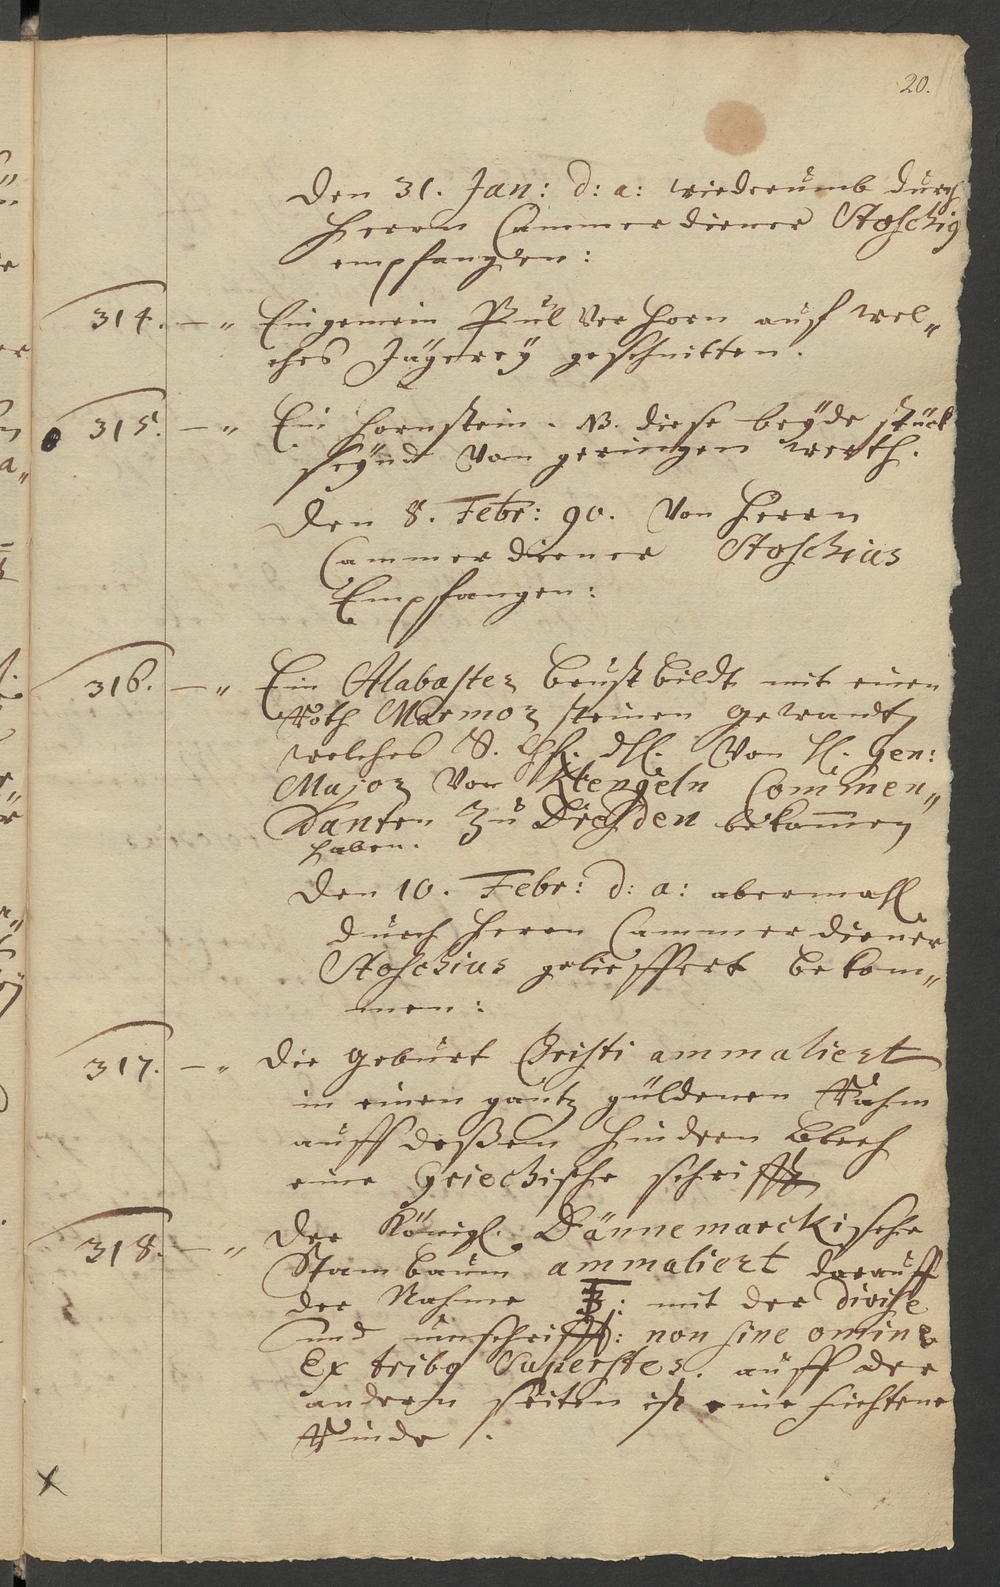 20.
Den 31. Jan: d: a: wiederumb durch
Herrn Cammerdiener Stoschig
empfangen:
314. — " Ein gemein Pulver Horn auf wel„
ches Jägerey geschnitten.
315. — " Ein Hornstein. NB. diese beyde stück
seynd von geringen werth.
Den 8. Febr: 90. Von Herrn
Cammerdiener Stoschius
Empfangen:
316. — " Ein Alabaster Brust bildt mit einen
Roth Marmor steinen gewandt,
welches S. Chf. dhl. Von H. Gen:
Major von Klengeln Commen„
danten Zu Dresden bekommen
haben.
Den 10. Febr: d: a: abermahl
durch Herrn Cammerdiener
Stoschius geliffert bekom„
men:
317. — " Die geburt Christi ammaliert
in einen gantz güldenen Rahm
auff deßen hindern blech
eine Griechische schrifft
318. — " Der Königl. Dännemarckische
Stambaum ammaliert darauff
der Nahme mit der divise
und umschrifft: non sine omine
Ex tribq Superstes. auff der
andern seiten ist eine fichtene
Rinde.
x